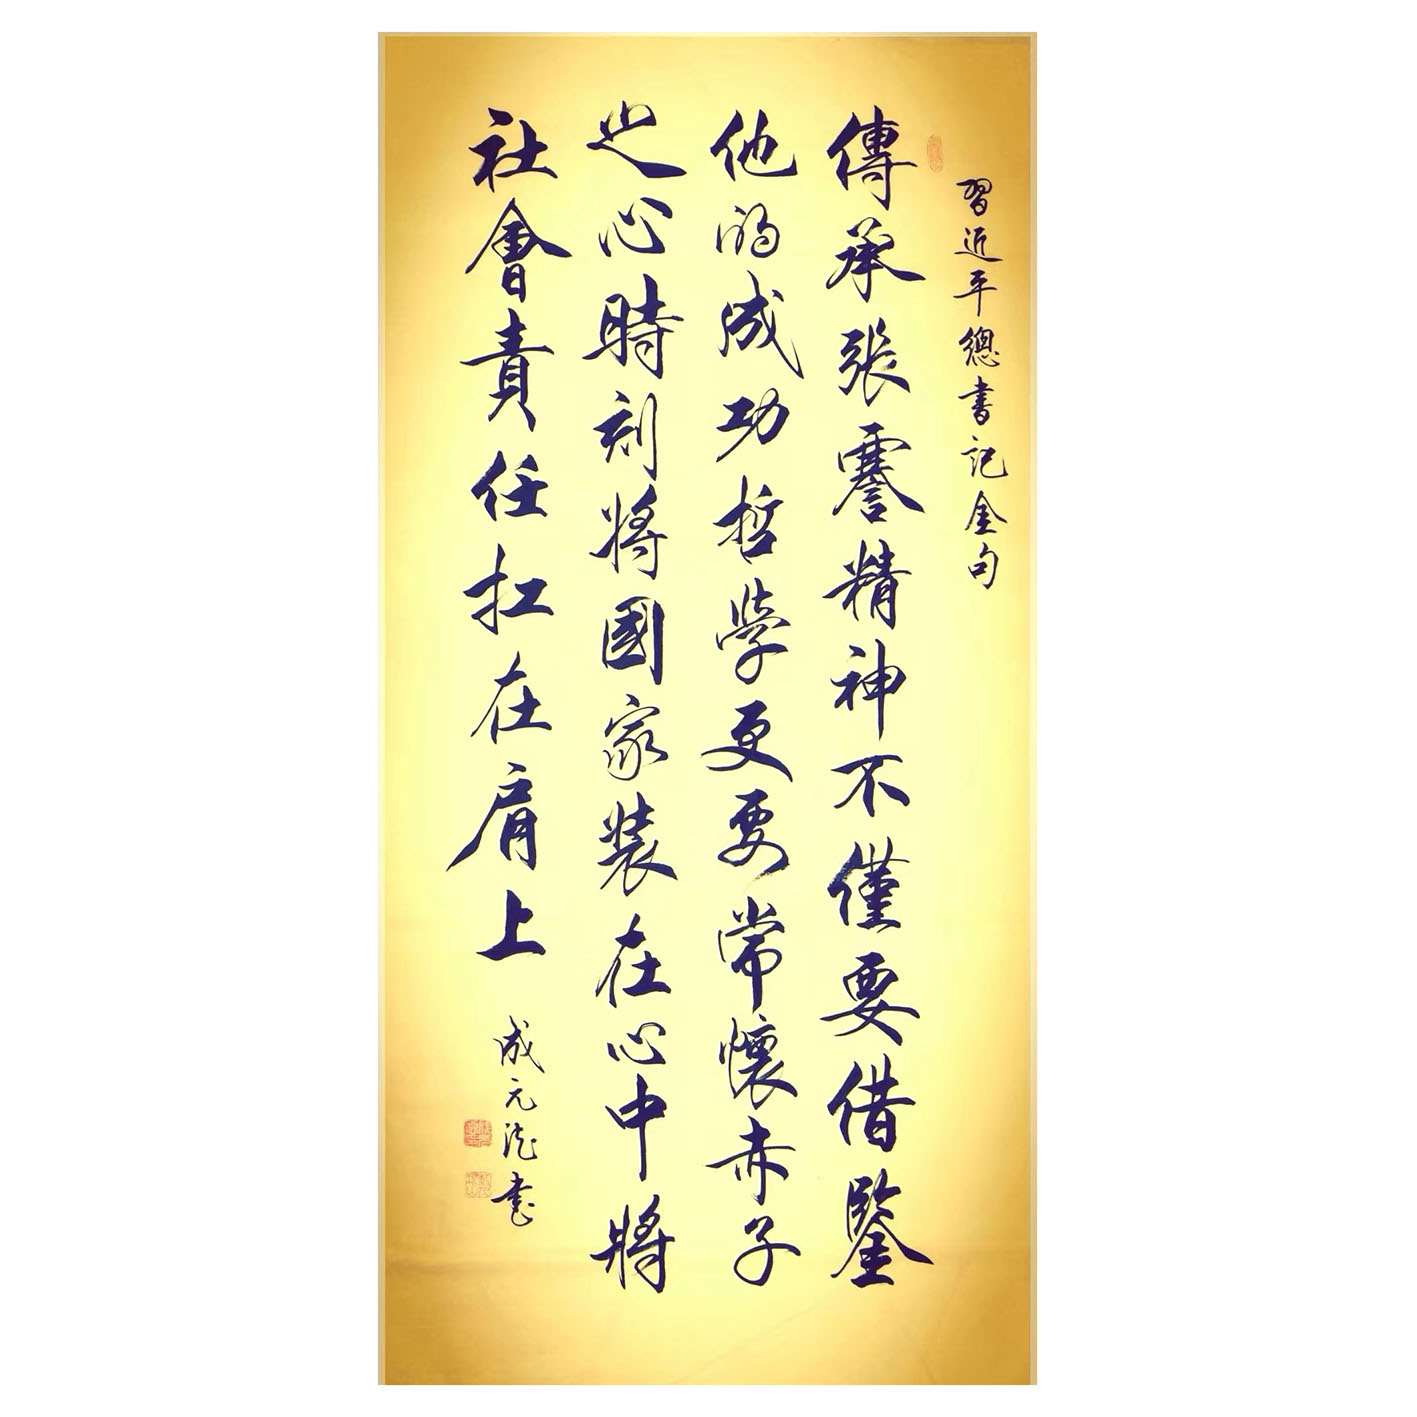 習近平總書記金句
傳承張謇精神不僅要借鑒
他的成功哲學更要常懷赤子
之心時刻將國家裝在心中將
社會責任扛在肩上
成元法書